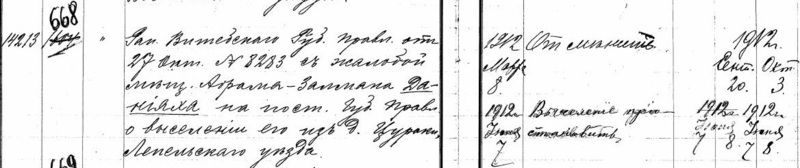 668
14213 " Рап. Витебскаго Губ. Правл. отъ
27 Окт. № 8283 съ жалобой
мѣщ. Абрама-Залмана Да-
на пост. Губ. Правл.
о выселеніи его изъ д. Цураки,
Лепельскаго уѣзда.
669
1912
8
Отмѣнить.
1912 г.
Сент. Окт
20. 3.
1912 г.
Іюня
7
Выселеніе пріо-
становить.
1912 г.
Іюня
7 8
1912 г.
Іюня
7 8.